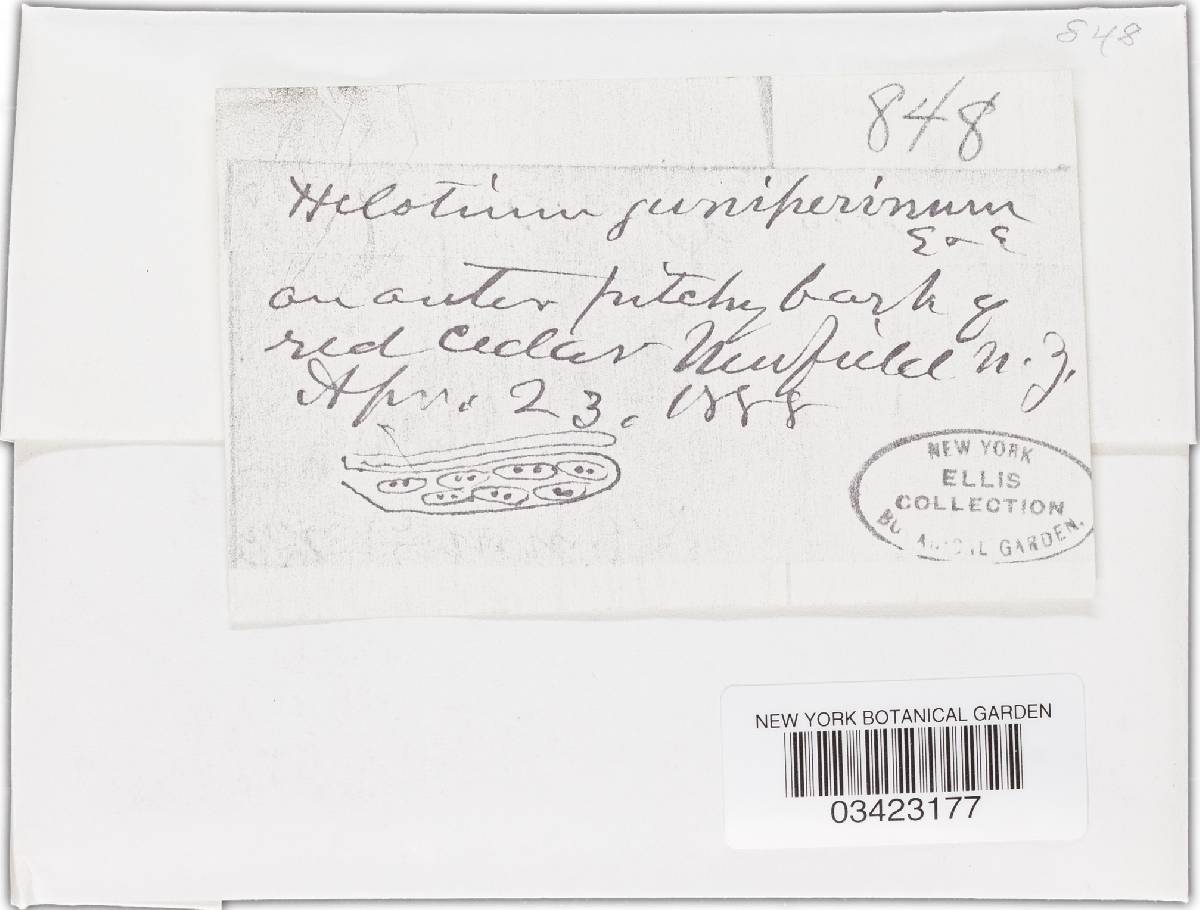 848
848
Helotium juniperinum
E & E
on outer pitchy bark of
red cedar Newfield N. J.
Apr. 23. 1888
NEW YORK
ELLIS
COLLECTION
BOTANICAL GARDEN.
NEW YORK BOTANICAL GARDEN
03423177